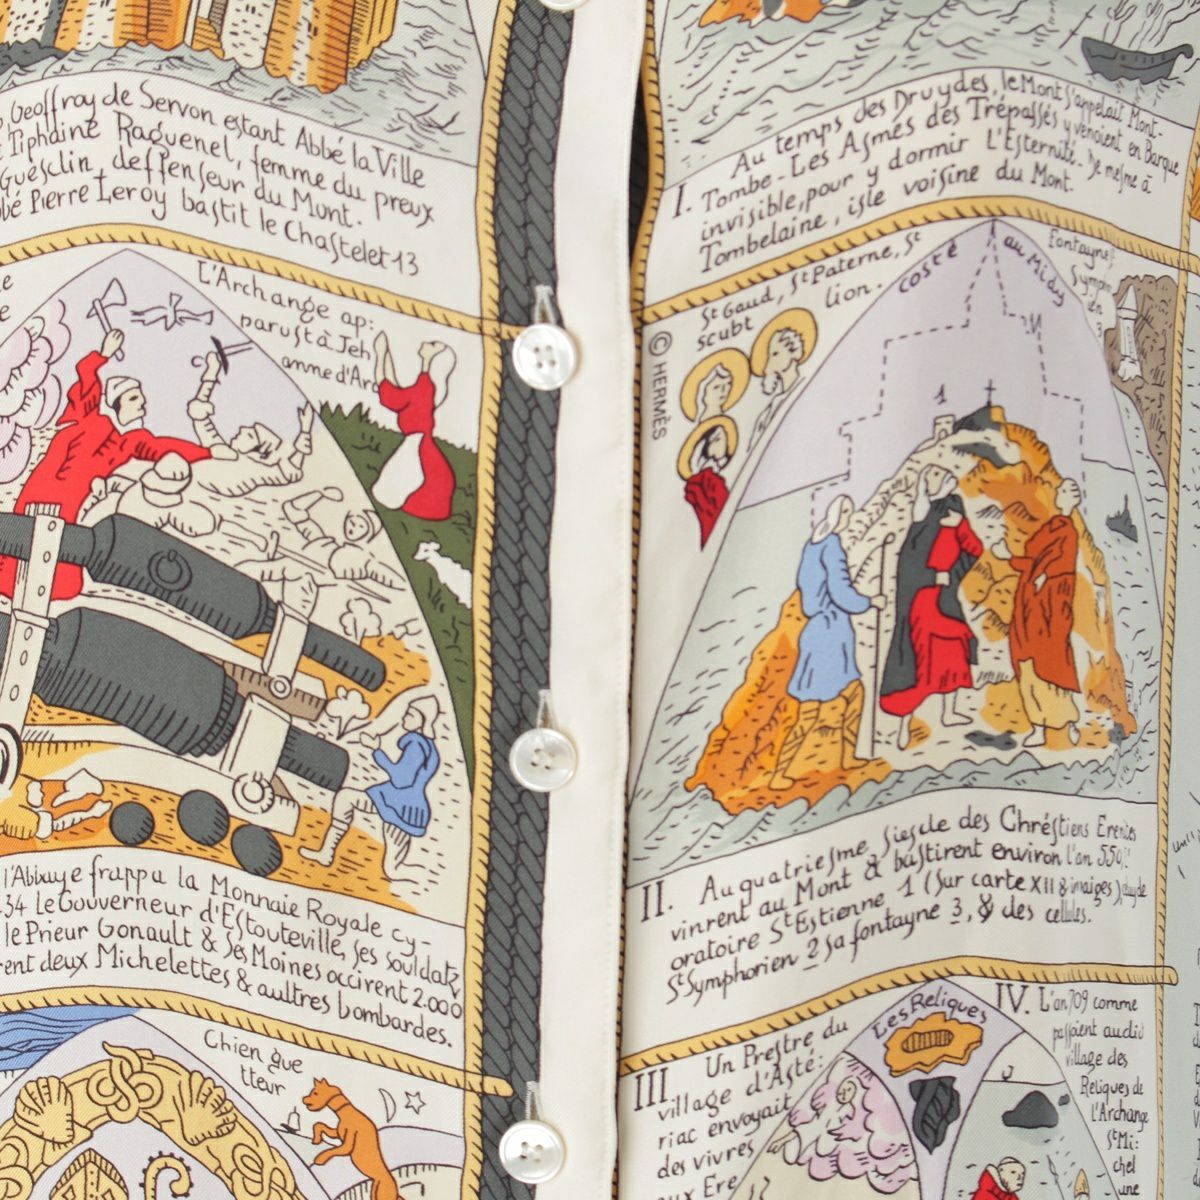 Geoffroy de Servon estant Abbé la Ville
Tiphaine Raguenel, femme du preux
Guesclin, deffenseur du Munt.
bé Pierre Leroy bastit le Chastelet 13
L'Archange ap:
parust à Jeh
anne d'Arc
l'Abbaye frappa la Monnaie Royale cy-
34 le Gouverneur d'Estouteville, ses souldatz
le Prieur Gonault & ses Moines occirent 2.000
rent deux Michelettes & aultres bombardes.
Chien gue
tteur
Au temps des Druydes, le Mont s'appelait Mont-
I. Tombe - Les Asmes des Trépassés y venoient en Barque
invisible, pour y dormir L'Esternité. De mesme à
Tombelaine, isle voisine du Mont.
St Gaud, St Paterne, St
scubt
lion.
costé au Midy
Fontayne
Symph
en
3
© HERMÈS
1
II. Au quatriesme siescle des Chréstiens
vinrent au Mont & bastirent environ l'an 550
oratoire St Estienne 1 (sur carte XII & imaiges)
St Symphorien 2 sa fontayne 3, & des cellules.
III. Un Prestre du
village d'Asté:
riac envoyait
des vivres
aux Ere
Les Reliques
IV. L'an 709 comme
passoient au dict
village des
Reliques de
L'Archange
St Mi:
chel
une